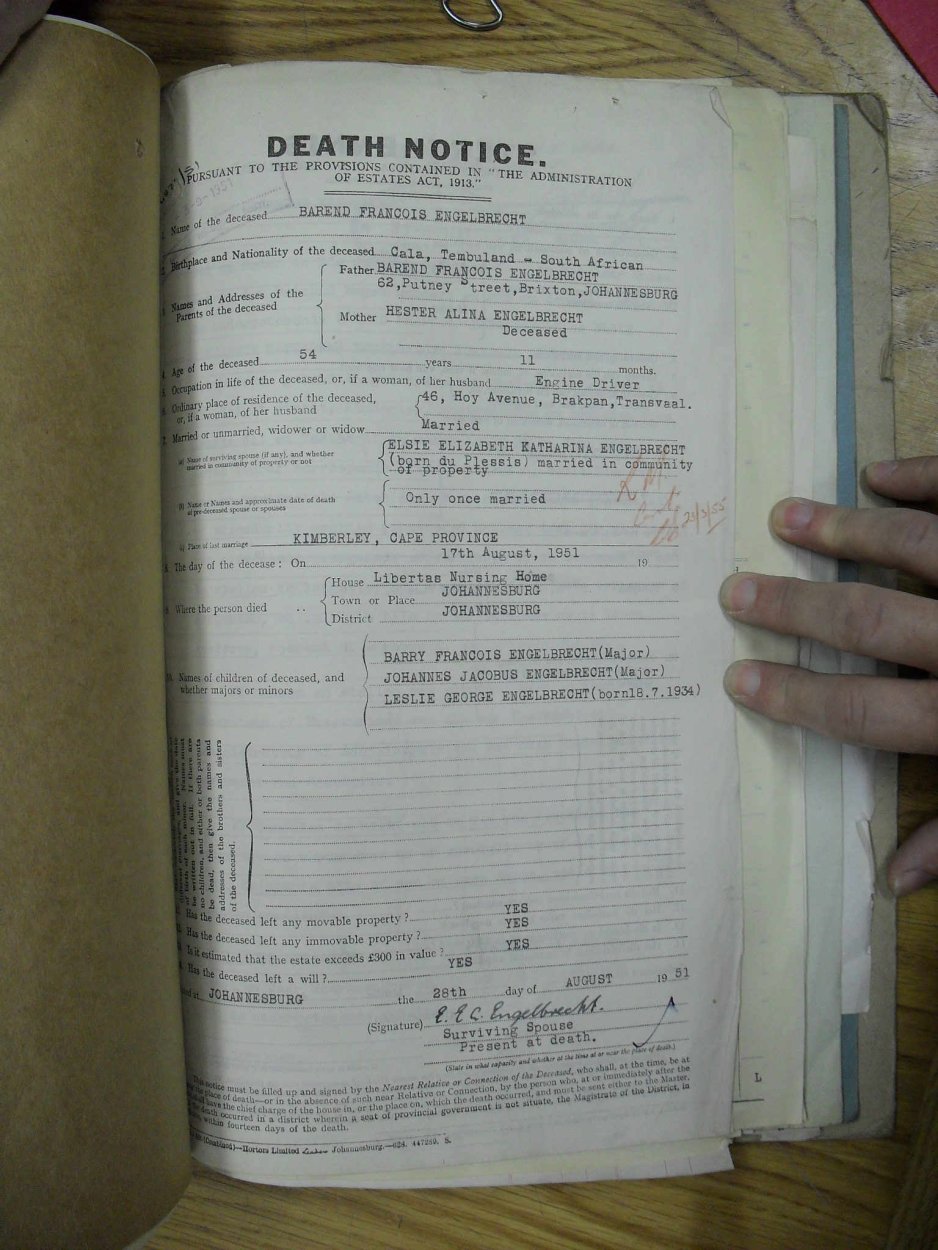 DEATH NOTICE.
PURSUANT TO THE PROVISIONS CONTAINED IN "THE ADMINISTRATION
OF ESTATES ACT, 1913."
Name of the deceased BAREND FRANCOIS ENGELBRECHT
Birthplace and Nationality of the deceased Cala, Tembuland - South African
Names and Addresses of the
Parents of the deceased
Father BAREND FRANCOIS ENGELBRECHT
62, Putney Street, Brixton, JOHANNESBURG
Mother HESTER ALINA ENGELBRECHT
Deceased
Age of the deceased 54 years 11 months.
Occupation in life of the deceased, or, if a woman, of her husband Engine Driver
Ordinary place of residence of the deceased,
or, if a woman, of her husband
46, Hoy Avenue, Brakpan, Transvaal.
Married or unmarried, widower or widow Married
(a) Name of surviving spouse (if any), and whether
married in community of property or not
ELSIE ELIZABETH KATHARINA ENGELBRECHT
(born du Plessis) married in community
of property
(b) Name or Names and approximate date of death
of pre-deceased spouse or spouses
Only once married
23/3/55
(c) Place of last marriage KIMBERLEY, CAPE PROVINCE
8. The day of the decease: On 17th August, 1951 19
9. Where the person died ..
House Libertas Nursing Home
Town or Place JOHANNESBURG
District JOHANNESBURG
10. Names of children of deceased, and
whether majors or minors
BARRY FRANCOIS ENGELBRECHT (Major)
JOHANNES JACOBUS ENGELBRECHT (Major)
LESLIE GEORGE ENGELBRECHT (born 18.7.1934)
of birth of each minor. Names must
be written out in full. If there are
no children, and either or both parents
be dead, then give the names and
addresses of the brothers and sisters
of the deceased.
Has the deceased left any movable property? YES
Has the deceased left any immovable property? YES
Is it estimated that the estate exceeds £300 in value? YES
Has the deceased left a will? YES
at JOHANNESBURG the 28th day of AUGUST 19 51
(Signature) E. E. C. Engelbrecht.
Surviving Spouse
Present at death.
(State in what capacity and whether at the time at or near the place of death.)
This notice must be filled up and signed by the Nearest Relative or Connection of the Deceased, who shall, at the time, be at
the place of death—or in the absence of such near Relative or Connection, by the person who, at or immediately after the
have the chief charge of the house in, or the place on, which the death occurred, and must be sent either to the Master,
death occurred in a district wherein a seat of provincial government is not situate, the Magistrate of the District, in
within fourteen days of the death.
Hortors Limited Johannesburg.
L